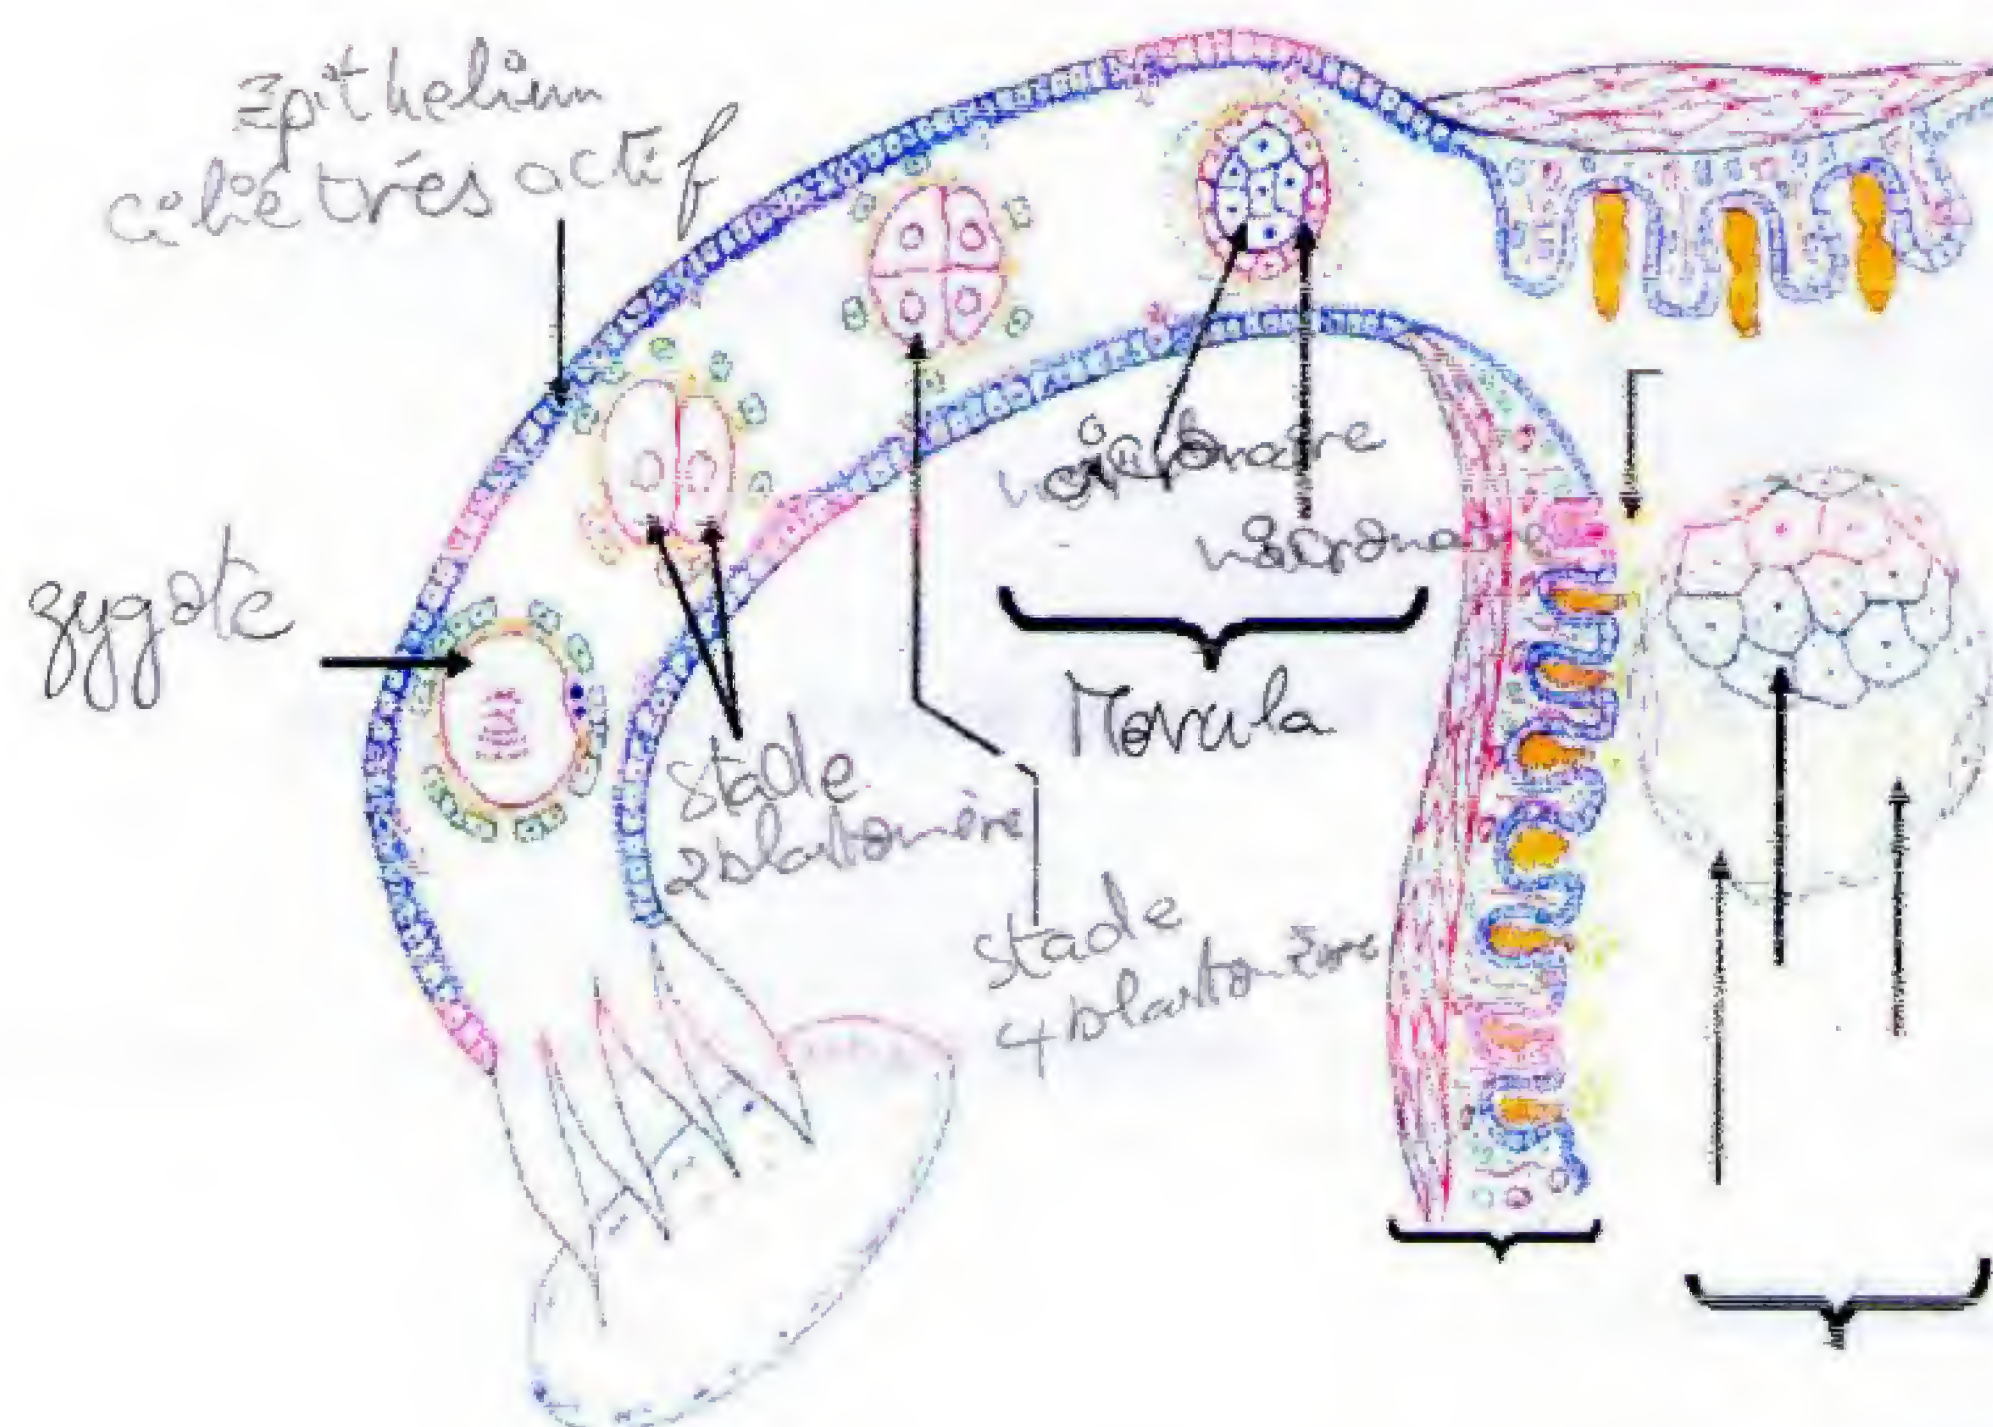 Epithelium
cilié très actif
zygote
stade
2 blastomère
stade
4 blastomère
Morula